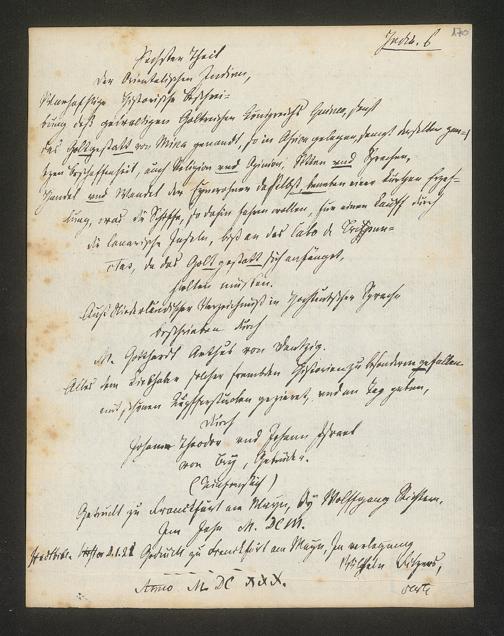 Indic. 6
170
Sechster Theil
der Orientalischen Indien,
Warhafftige Historische Beschrei-
bung deß gewaltigen Goltreichen Königreichs Guinea, sonst
das Goltgestatt von Mina genandt, so in Africa gelegen, sampt derselben gan-
tzen Beschaffenheit, auch Religion und Opinion, Sitten und Sprachen,
Handel und Wandel der Eynwohner daselbst, beneben einer kurtzen Erzeh-
lung, was die Schiffe, so dahin fahren wollen, für einen Lauff durch
die Canarische Inseln, biß an das Cabo de Trespun-
ctas, da das Goltgestatt sich anfänget,
halten müssen.
Auß Niederländischer Verzeichnuß in Hochteutscher Sprache
beschrieben durch
M. Gotthardt Arthus von Dantzig.
Alles dem Liebhaber solcher frembden Historien zu besonderm gefallen
mit schönen Kupfferstucken gezieret, und an Tag geben,
Durch
Johann Theodor und Johann Israel
von Bry, Gebrüder.
Gedruckt zu Franckfurt am Mayn, by Wolffgang Richtern,
Im Jahr M. DCIII.
Gedruckt zu Franckfurt am Mayn, In verlegung
Wilhelm Fitzers,
Anno M DC XXX.